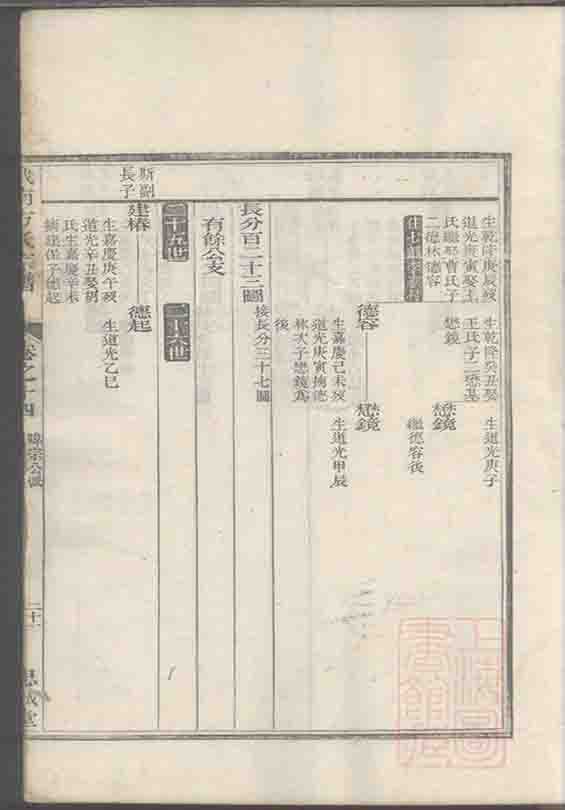 生乾隆庚辰歿
道光庚寅娶王
氏繼娶曹氏子
二德林德容
生乾隆癸丑娶
王氏子二懋基
懋鏡
懋鏡
生道光庚子
繼德容後
德容
懋鏡
生嘉慶己未歿
道光庚寅擕德
林次子懋鏡為
後
生道光甲辰
長分百二十三圖
接長分三十七圖
有餘公支
二十五世
二十六世
斯副
長子
建椿
德起
生嘉慶庚午歿
道光辛丑娶胡
氏生嘉慶辛未
生道光乙巳
卷之十四
二十一
思成堂
上海圖
書館藏